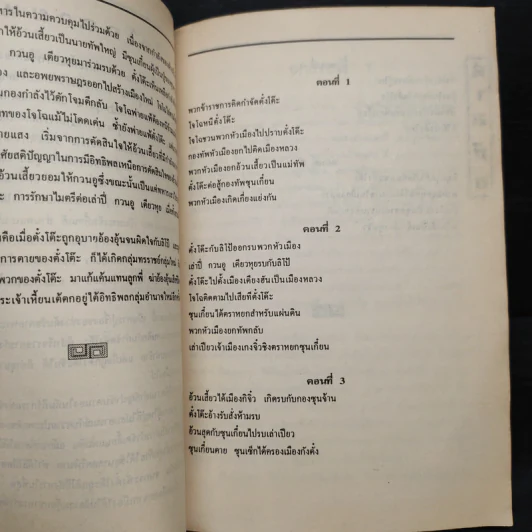 หารในความควบคุมไปร่วมด้วย เนื่องจากกำ
าให้อ้วนเสี้ยวเป็นนายทัพใหญ่ มีซุนเกี๋ยน
กวนอู เตียวหุยมาร่วมรบด้วย ตั๋งโต๊ะเห็น
อง และอพยพราษฎรออกไปสร้างเมืองใหม่ โจโฉ
นกองกำลังไว้ดักโจมตีกลับ โจโฉพ่ายแพ้
ของโจโฉแม้ไม่โดดเด่น ซ้ำยังพ่ายแพ้ตั๋งโต๊ะ
ายแสง เริ่มจากการตัดสินใจให้อ้วนเสี้ยว
ศัยสติปัญญาในการมีอิทธิพลเหนือการตัดสินใจ
อ้วนเสี้ยวยอมให้กวนอูซึ่งขณะนั้นเป็นแค่
ะ การรักษาไมตรีต่อเล่าปี่ กวนอู เตียวหุย
คือเมื่อตั๋งโต๊ะถูกอุบายอ้องอุ้นจนผิดใจกับลิโป้
การตายของตั๋งโต๊ะ ก็ได้เกิดกลุ่มทรราชย์กลุ่มใหม่
พวกของตั๋งโต๊ะ มาแก้แค้นแทนลูกพี่ ฆ่าอ้องอุ้น
ระเจ้าเหี้ยนเต้ตกอยู่ใต้อิทธิพลกลุ่มอำนาจใหม่
ตอนที่ 1
พวกข้าราชการคิดกำจัดตั๋งโต๊ะ
โจโฉหนีตั๋งโต๊ะ
โจโฉชวนพวกหัวเมืองไปปราบตั๋งโต๊ะ
กองทัพหัวเมืองยกไปตีเมืองหลวง
พวกหัวเมืองยกอ้วนเสี้ยวเป็นแม่ทัพ
ตั๋งโต๊ะต่อสู้กองทัพซุนเกี๋ยน
พวกหัวเมืองเกิดเกี่ยงแย่งกัน
ตอนที่ 2
ตั๋งโต๊ะกับลิโป้ออกรบพวกหัวเมือง
เล่าปี่ กวนอู เตียวหุยรบกับลิโป้
ตั๋งโต๊ะไปตั้งเมืองเตียงฮันเป็นเมืองหลวง
โจโฉติดตามไปเสียทีตั๋งโต๊ะ
ซุนเกี๋ยนได้ตราหยกสำหรับแผ่นดิน
พวกหัวเมืองยกทัพกลับ
เล่าเปียวเจ้าเมืองเกงจิ๋วชิงตราหยกซุนเกี๋ยน
ตอนที่ 3
อ้วนเสี้ยวได้เมืองกิจิ๋ว เกิดรบกับกองซุนจ้าน
ตั๋งโต๊ะอ้างรับสั่งห้ามรบ
อ้วนสุดกับซุนเกี๋ยนไปรบเล่าเปียว
ซุนเกี๋ยนตาย ซุนเซ็กได้ครองเมืองกังตั๋ง